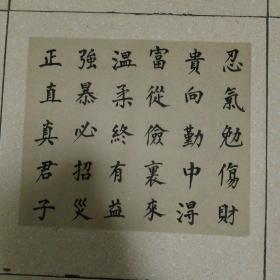 忍氣勉傷財
貴向勤中淂
富從儉裏來
温柔終有益
強暴必招災
正直真君子